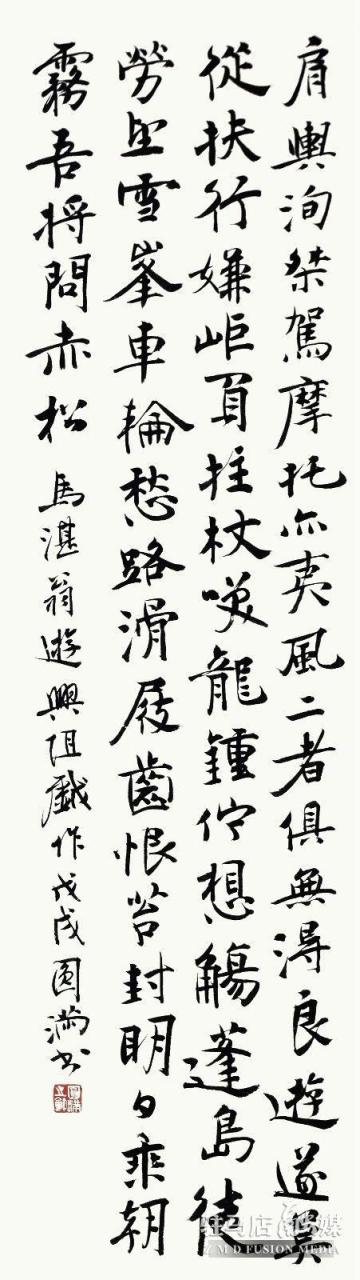 肩輿洵桀駕摩托亦夷風二者俱無得良遊遂莫
從扶行嫌岠負拄杖咲龍鍾佇想觴蓬島徒
勞望雪峯車輪愁路滑屐齒恨苔封明日乘朝
霧吾將問赤松 馬湛翁遊興阻戲作戊戌圓滿書
驻马店融媒
ZMD FUSION MEDIA